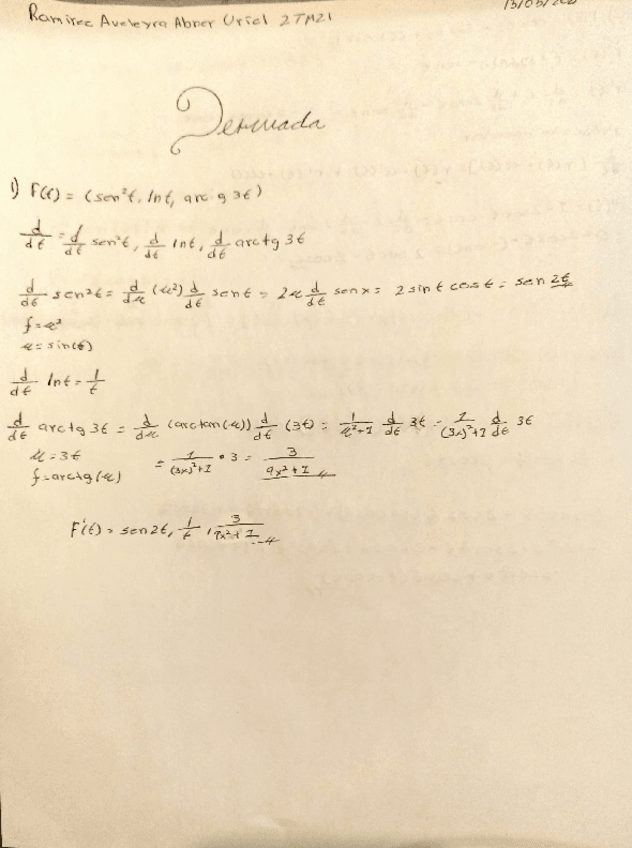 Ramirez Aveleyra Abner Uriel 2TM21
Derivada
1) F(t) = (sen²t, lnt, arc g 3t)
d/dt = d/dt sen²t, d/dt lnt, d/dt arctg 3t
d/dt sen²t = d/du (u²) d/dt sent = 2u d/dt senx = 2 sint cost = sen 2t
f=u²
u=sin(t)
d/dt lnt = 1/t
d/dt arctg 3t = d/du (arctan(u)) d/dt (3t) = 1/u²+1 d/dt 3t = 1/(3x)²+1 d/dt 3t
u=3t
f=arctg(u)
= 1/(3x)²+1 • 3 = 3/9x²+1
F'(t) = sen2t, 1/t, 3/9x²+1